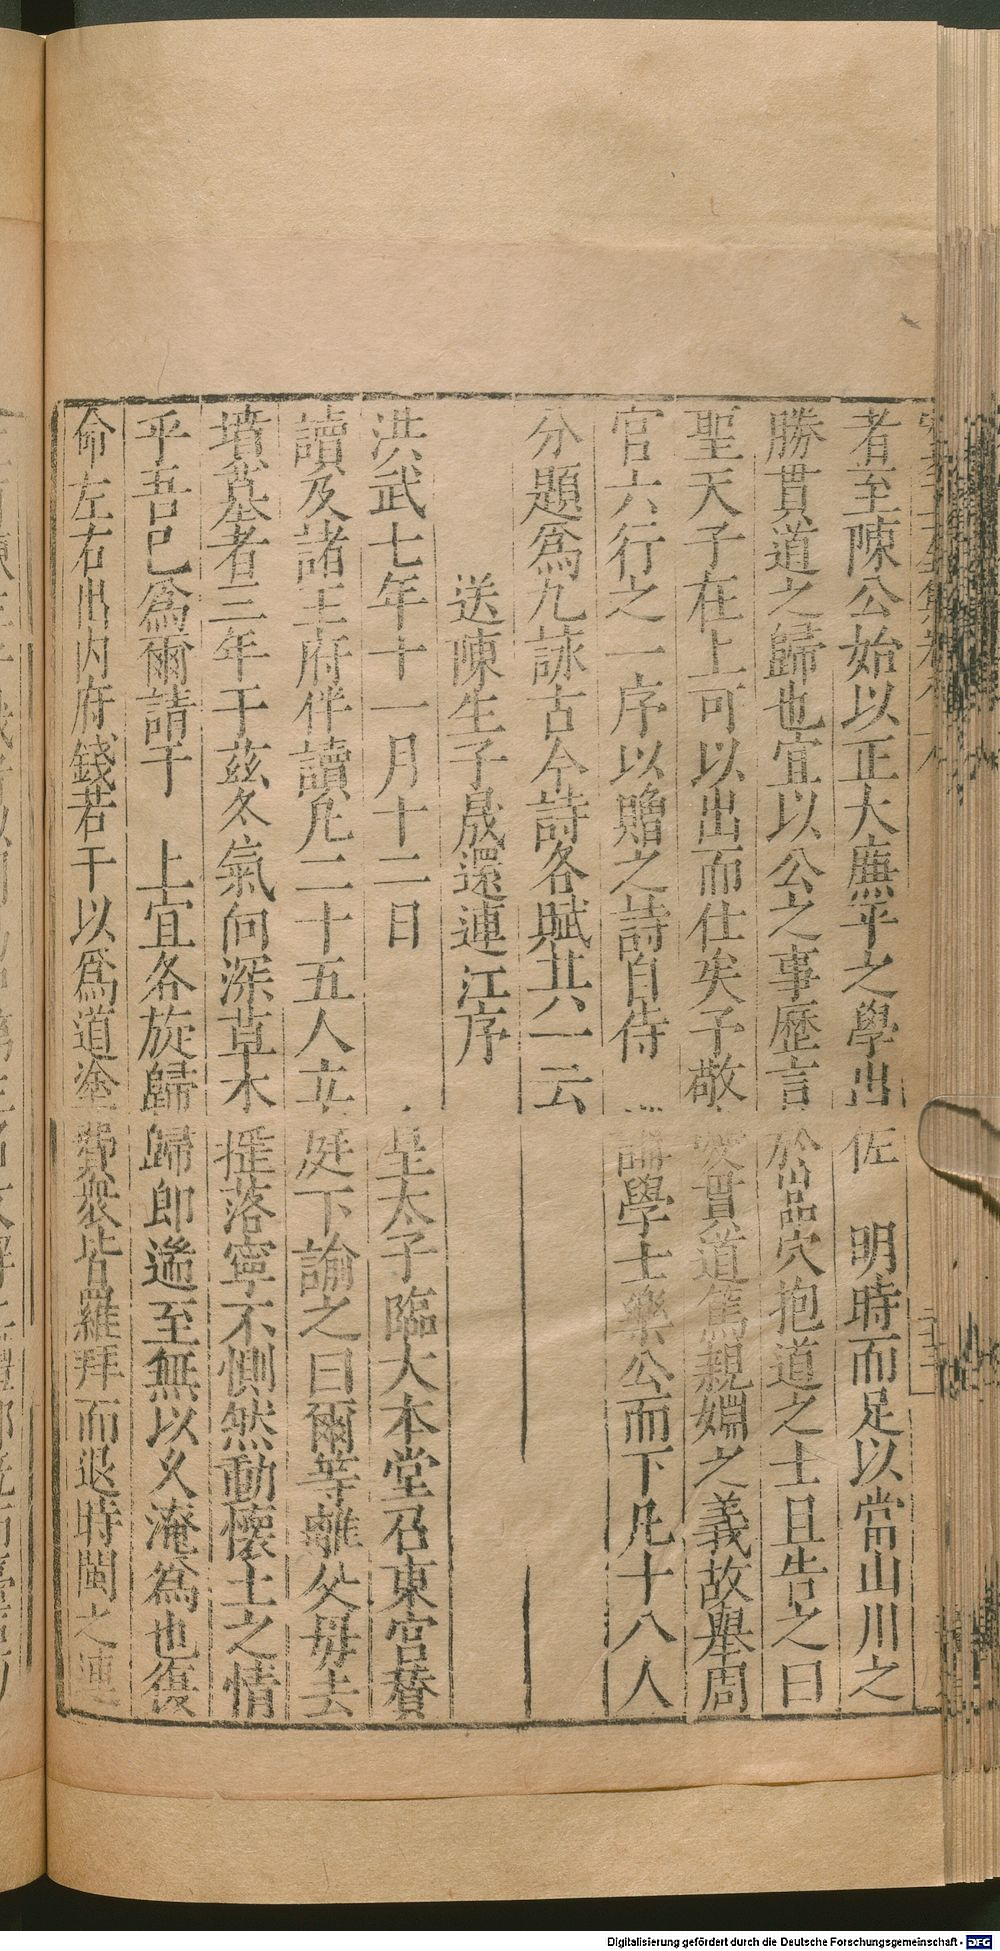 者至陳公始以正大廡平之學出佐　明時而足以當山川之
勝貫道之歸也宜以公之事歷言於嵒穴抱道之士且告之曰
聖天子在上可以出而仕矣予敬愛貫道篤親婣之義故舉周
官六行之一序以贈之詩自侍　講學士樂公而下凡十八人
分題爲九詠古今詩各賦其一云
送陳生子晟還連江序
洪武七年十一月十二日　皇太子臨大本堂召東宮賛
讀及諸王府伴讀凡二十五人立庭下諭之曰爾等離父母去
墳墓者三年于茲冬氣向深草木摧落寧不惻然動懷土之情
乎吾已爲爾請于　上宜各旋歸歸郎遄至無以久淹爲也復
命左右出内府錢若干以爲道塗費衆皆羅拜而退時閩之連
Digitalisierung gefördert durch die Deutsche Forschungsgemeinschaft - DFG